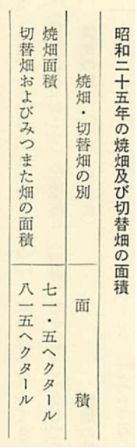 昭和二十五年の焼畑及び切替畑の面積
焼畑・切替畑の別　面　積
焼畑面積　七一・五ヘクタール
切替畑およびみつまた畑の面積　八一五ヘクタール